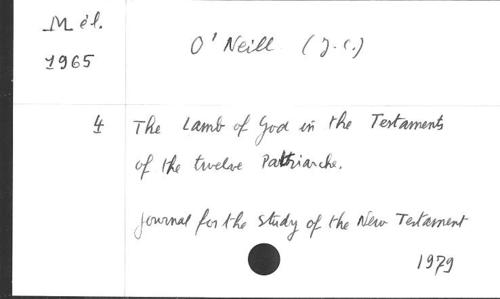 Mél.
1965
O'Neill (J.C.)
4 The Lamb of God in the Testaments
of the twelve Patriarche.
Journal for the Study of the New Testament
1979